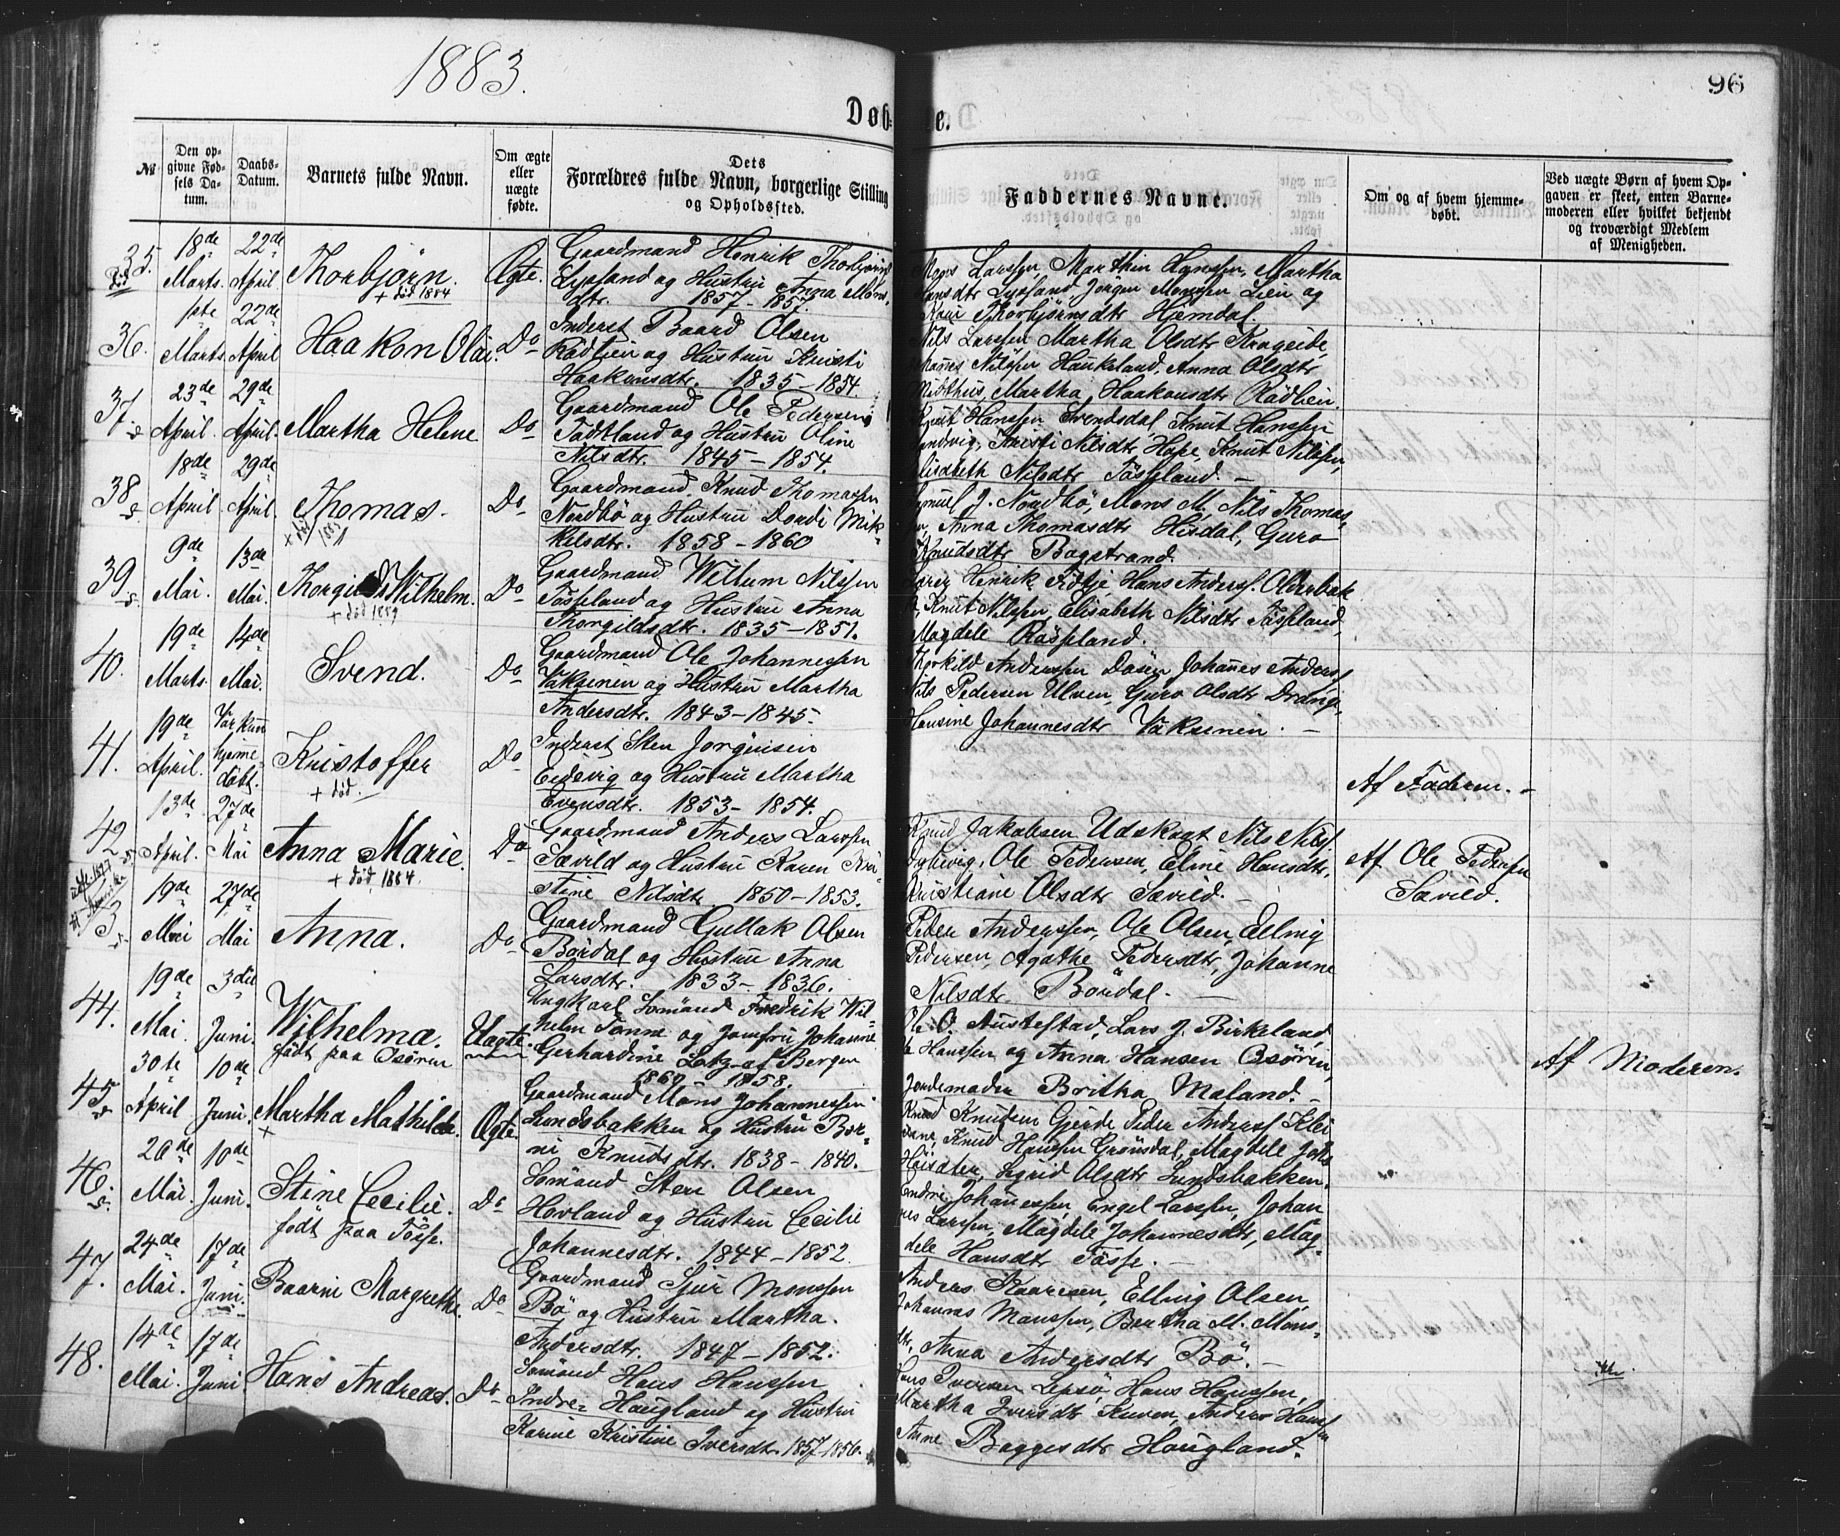 1883.
96
Døb- te.
№
Den opgivne Fødsels Datum.
Daabs-Datum.
Barnets fulde Navn.
Om ægte eller uægte fødte.
Dets Forældres fulde Navn, borgerlige Stilling og Opholdssted.
Faddernes Navne.
Om og af hvem hjemmedøbt.
Ved uægte Børn af hvem Opgaven er skeet, enten Barnemoderen eller hvilket bekjendt og troværdigt Medlem af Menigheden.
35. 18de Marts. 22de April Thorbjørn. + død 1884 Ægte.
Gaardmand Henrik Thorbjørns
Lysland og Hustru Anna Møns
dtr. 1857-1857.
Mons Larssen, Marthin Hanssen, Martha
Hansdtr Lysland, Jørgen Monssen Lien og
Kari Thorbjørnsdtr Hæmdal.
36. 1ste Marts. 22de April Haakon Olai. Do
Inderst Baard Olsen
Rødlien og Hustru Kristi
Haakonsdtr. 1835-1854.
Nils Larssen, Martha Olsdtr
Nilssen Haukeland, Anna Olsdtr
Midthus, Martha Haakonsdtr Rødlien.
37. 23de April. 29de April. Martha Helene Do
Gaardmand Ole Pedersen
Tødtland og Hustru Oline
Nilsdtr. 1845-1854.
Knut Hanssen Svendsdal Knut Hanssen
Kristi Nilsdtr Hope, Knut Nilssen,
Elisabeth Nilsdtr Tøsseland.-
38. 18de April 29de April. Thomas. + død 1881 Do
Gaardmand Knud Thomassen
Nordbø og Hustru Dordi Mik-
kelsdtr. 1858-1860
J. Nordbø, Mons M. Nils Thomas
Anna Thomasdtr Hisdal, Guro
Knudsdtr Bogstrand.
39. 9de Mai. 13de Mai. Thorgild Wilhelm. + død 1889 Do
Gaardmand Willum Nilssen
Tøsseland og Hustru Anna
Thorgildsdtr. 1835-1851.
Henrik Hans Anderss.
Knut Nilssen, Elisabeth Nilsdtr Tøsseland,
Magdele Røsseland.
40. 19de Marts. 14de Mai. Svend. Do
Gaardmand Ole Johannessen
Vaksinen og Hustru Martha
Andersdtr. 1843-1845.
Thorkild Anderssen Døsen Johannes Anderss
Nils Pedersen Ulven, Guro Olsdtr Drange
Hansine Johannesdtr Vaksinen.-
41. 19de April. Var kun hjemmedøbt. Kristoffer + død. Do
Inderst Sten Jørgensen
Eidevig og Hustru Martha
Evensdtr. 1853-1854.
Af Faderen.-
42 13de April. 27de Mai Anna Marie. + død 1884. Do
Gaardmand Anders Larssen
Sævild og Hustru Karen Kri-
stine Nilsdtr 1850-1853.
Knud Jakobsen Udskogt Nils Nils.
Ole Pedersen, Eline Hansdtr,
Kristiane Olsdtr Sævild.-
Af Ole Pedersen
Sævild.
3 19de Mai 27de Mai Anna. Do
Gaardmand Gullak Olsen
Bøvdal og Hustru Anna
Larsdtr. 1833-1836.
Peder Anderssen, Ole Olsen, Elling
Pedersen, Agathe Pedersdtr, Johanne
Nilsdtr. Bøvdal.-
44. 19de Mai 3die Juni. Wilhelma. født paa Osøren Uægte
Ungkarl Sømand Fredrik Wil-
helm Tonne og Jomfru Johanne
Gerhardine Lotz af Bergen
1860-1858.
Ole O. Austestad, Lars J. Birkeland,
Hanssen og Anna Hansen Osøren,
Jordemoder Britha Moland.-
Af Moderen.
45. 30te April 10de Juni. Martha Mathilde. + Ægte.
Gaardmand Mons Johannessen
Lundsbakken og Hustru Bor-
ni Knudsdtr. 1838-1840.
Knud Knudsen Gjerde Peder Anderss
Knud Hanssen Grønsdal, Magdele
Sigrid Olsdtr Lundsbakken.
46. 26de Mai. 10de Juni. Stine Cecilie. født paa Tøsse. Do
Sømand Sten Olsen
Hovland og Hustru Cecilie
Johannesdtr. 1844-1852.
Endre Johannessen, Engel Larssen, Johan
nes Larssen, Magdele Johannesdtr, Mag-
dele Hansdtr Tøsse.-
47. 24de Mai. 17de Juni. Baarni Margrethe. Do
Gaardmand Sjur Monssen
Bø og Hustru Martha
Andersdtr. 1847-1852.
Anders Kaaresen, Elling Olsen,
Johannes Monssen, Bertha M. Mons-
dtr, Anna Andersdtr Bø.-
48. 14de Mai. 17de Juni Hans Andreas. Do
Sømand Hans Hanssen
Indre-Haugland og Hustru
Karine Kristine Iversdtr. 1857-1856.
Hans Iversen Lepsø, Hans Hanssen,
Martha Iversdtr Kuven, Anders Hanss
Anne Baggesdtr Haugland.